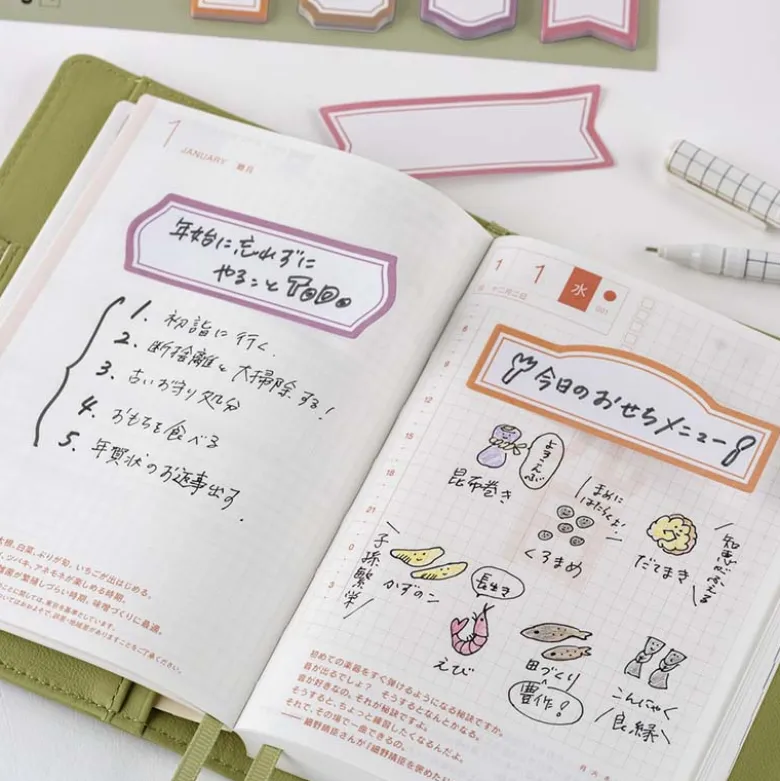 1
JANUARY 睦月
年始に忘れずに
やること TODO。
1. 初詣に行く.
2. 断捨離と大掃除する!
3. 古いお守り処分
4. おもちを食べる
5. 年賀状のお返事出す.
大根、白菜、ぶりが旬。いちごが出はじめる。
ツバキ、アネモネが楽しめる時期。
味噌づくりに最適。
1 1 水
十二月二日
001
今日のおせちメニュー
昆布巻き
よろこんぶ
まめに
はたらくよ!
くろまめ
だてまき
知恵が増える
子孫繁栄
かずのこ
長生き
えび
田づくり
豊作!
こんにゃく
良縁
6
9
12
15
18
21
0
3
初めての楽器をすぐ弾けるようになる秘訣ですか。
音が出るでしょ? そうするとなんとかなる。
音が好きなの。それが秘訣ですよ。
そうすると、ちょっと練習したくなるんだよ。
それで、その場で一曲できるの。